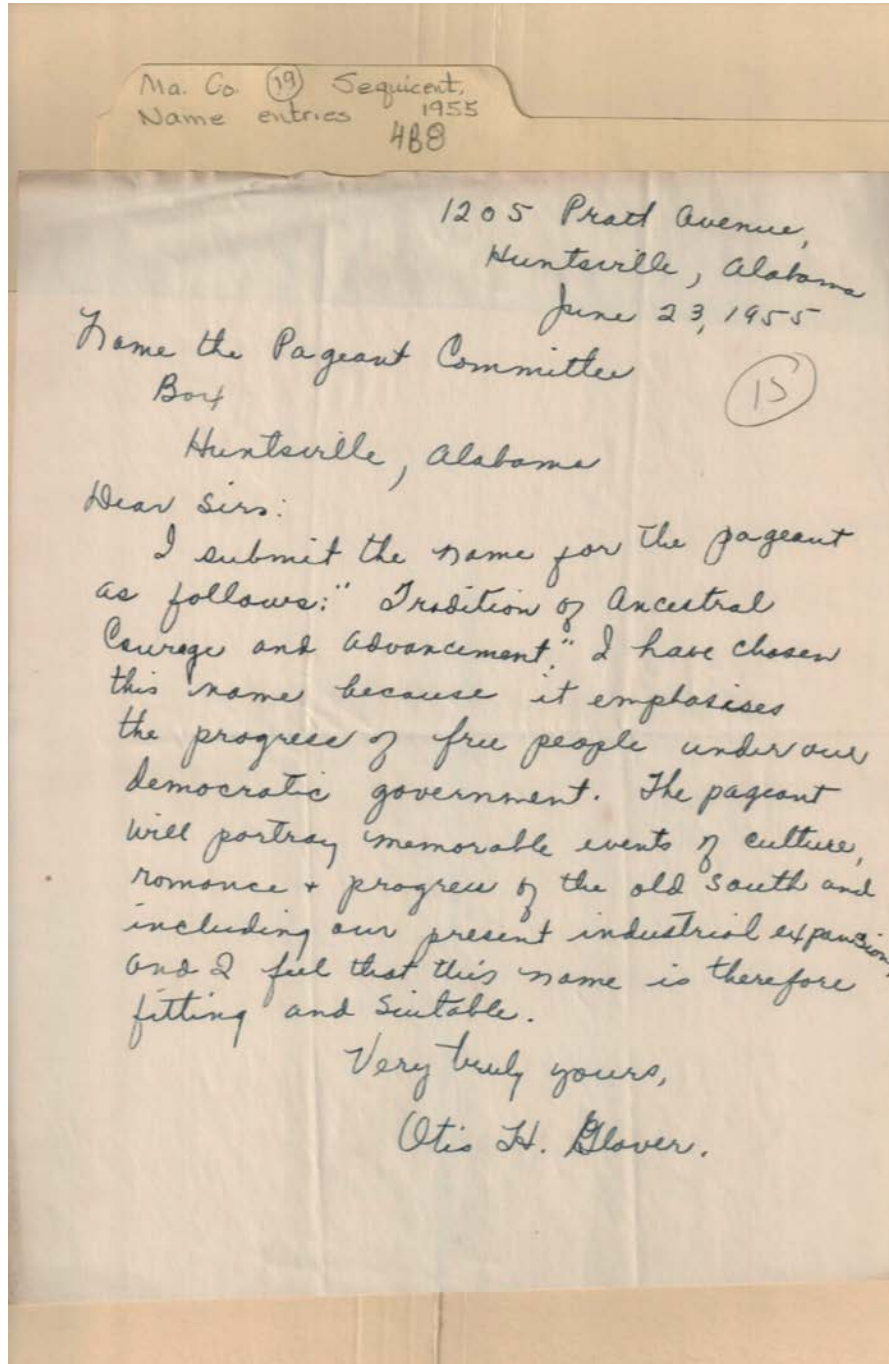 Ma. Co. 19 Sequicent.
Name entries 1955
4B8
1205 Pratt Avenue,
Huntsville, Alabama
June 23, 1955
Name the Pageant Committee
15
Box
Huntsville, Alabama
Dear Sirs:
I submit the name for the pageant
as follows: "Tradition of Ancestral
Courage and Advancement." I have chosen
this name because it emphasises
the progress of free people under our
democratic government. The pageant
will portray memorable events of culture,
romance + progress of the old South and
including our present industrial expansion,
and I feel that this name is therefore
fitting and suitable.
Very truly yours,
Otis H. Glover.